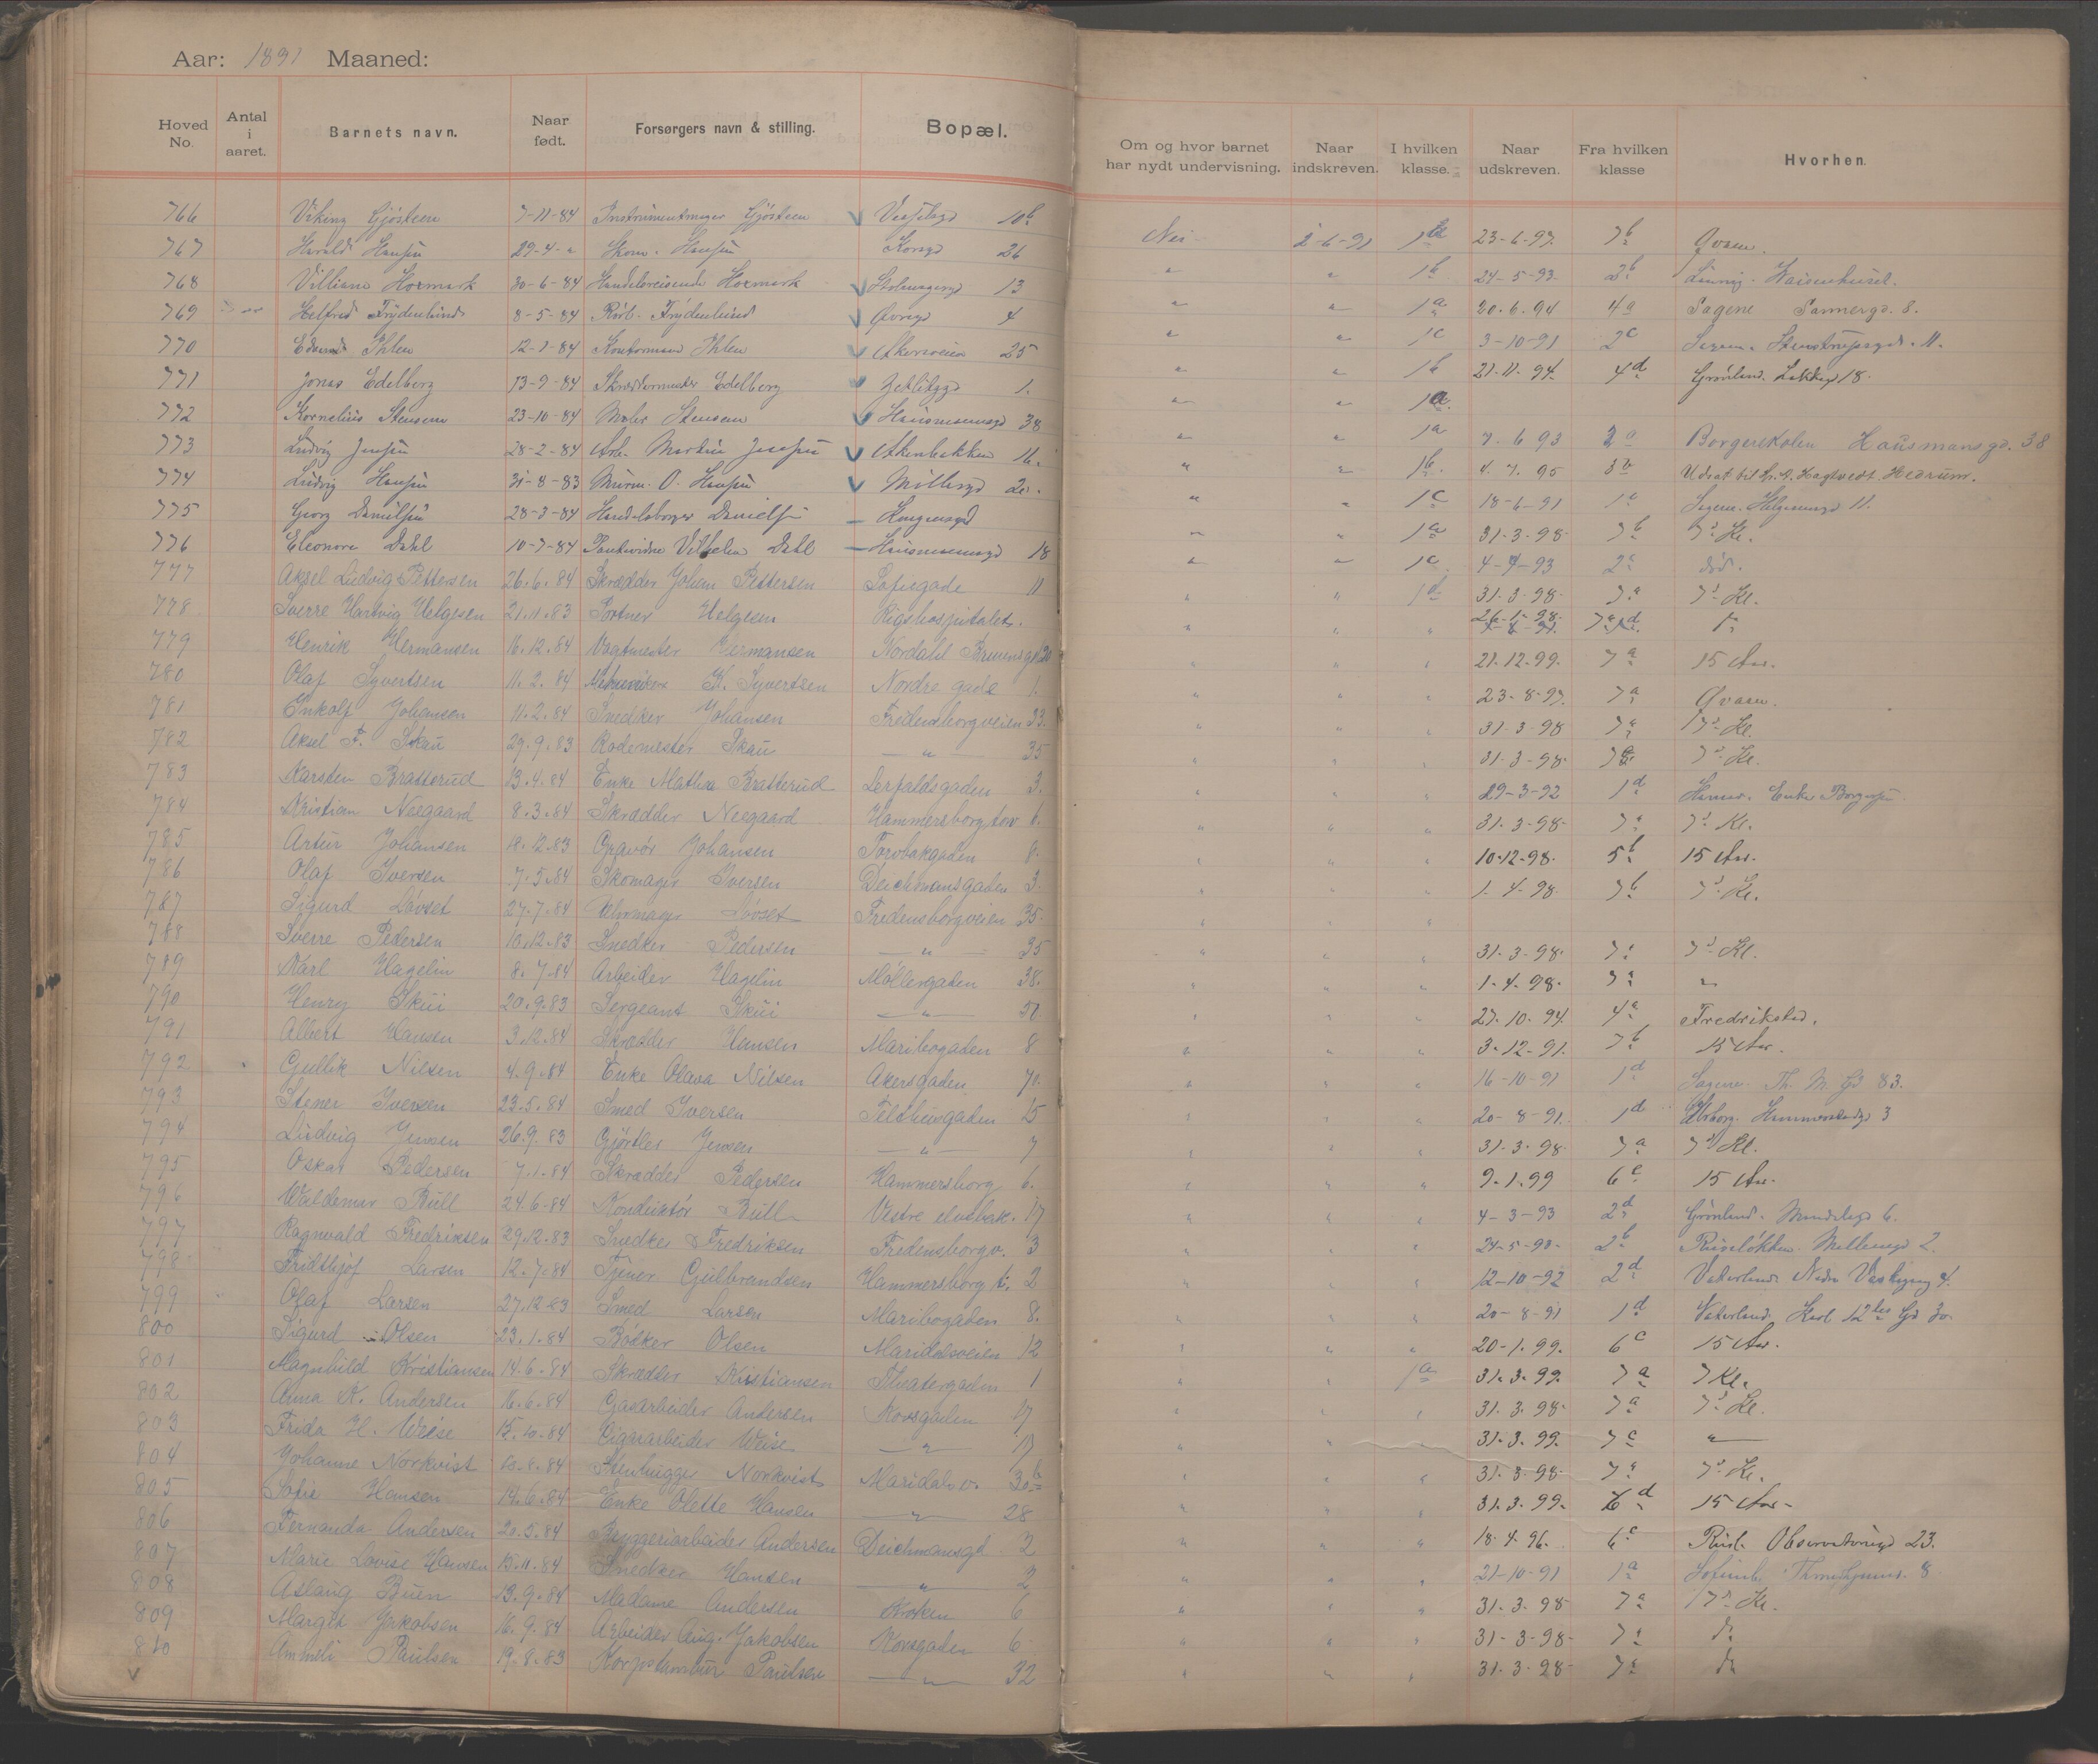 Aar: 1891 Maaned:
Hoved No. Antal i aaret. Barnets navn. Naar født. Forsørgers navn & stilling. Bopæl. Om og hvor barnet har nydt undervisning. Naar indskreven. I hvilken klasse. Naar udskreven. Fra hvilken klasse Hvorhen.
766 Viking Gjösteen 7-11-84 Instrumentmager Gjösteen 10b Nei 2-6-91 23-6-97. 7b Qvæn.
767 Harald Hansen 29-4-" Skom. Hansen Korsgd 26 " " 1b 24-5-93. 2b Waisenhuset.
768 30-6-84 Handelsreisende Stolmagergd 13 " " 1a 20.6.94 4a Sagene Sannergd. 8.
769 Helfred Frydenlund 8-5-84 Frydenlund Øvregd 4 " " 1c 3-10-91 2c 11.
770 Edvard Ihlen 12-1-84 Kontormand Ihlen Akersveien 25 " " 1b 21.11.94. 4d Grønland. 18.
771 Jonas Edelberg 13-9-84 Skræddermester Edelberg 1. " " 1a.
772 Kornelius Stensen 23-10-84 Maler Stensen Hausmannsgd 38 " " 1a 7.6 93 2a Borgerskolen Hausmansgd. 38
773 Ludvig Jensen 28-2-84 Arb. Martin Jensen Akersbakken 16. " " 1b. 4.7.95 3b Udsat til Hedrum.
774 Ludvig Hansen 31-8-83 Murm. O. Hansen Möllergd " " 1c 18-6-91 1c Sagene. Helgesensgd 11.
775 Georg Danielsen 28-3-84 Handelsborger Danielsen Kongensgd " " 1a 31.3-98 7b 7d Kl.
776 Eleonora Dahl 10-7-84 Vilhelm Dahl Hausmannsgd 18 " " 1c. 4-4-93 2c død.
777 Aksel Ludvig Pettersen 26.6.84 Skrædder Johan Pettersen Sofiegade 11 " " 1d 31.3-98- 7a 7d Kl.
778 Sverre Hartvig Helgesen 21.11.83 Portner Helgesen Rigshospitalet. " " " 26-1-98
779 Henrik Hermansen 16.12.84 Vagtmester Hermansen Nordahl Brunsgd 20 " " " 21.12.99. 7a 15 Aar.
780 Olaf Syvertsen 11.2.84 K. Syvertsen Nordre gade 1. " " " 23-8-97. 7a Qvæn.
781 Inkolf Johansen 11.2.84 Snedker Johansen Fredensborgveien 33. " " " 31.3-98 7a 7d Kl.
782 Aksel F. Skau 29.9.83 Rodemester Skau " 35 " " " 31.3-98- 7d Kl.
783 Karsten Bratterud 13.4.84 Enke Mathea Bratterud Lerfaldsgaden 3. " " " 29-3-92 1d Hamar. Enke Borgersen
784 Kristian Neegaard 8.3.84 Skrædder Neegaard Hammersborg torv 6. " " " 31.3-98- 7a 7d Kl.
785 Artur Johansen 12.83 Gravör Johansen Torvbakgaden 8. " " " 10-12-98. 5b 15 Aar.
786 Olaf Iversen 7.5.84 Skomager Iversen Deichmansgaden 3. " " " 1-4-98 7b 7d Kl.
787 Sigurd Lövset 27.7.84 Uhrmager Lövset Fredensborgveien 35. " " "
788 Sverre Pedersen 10.12.83 Snedker Pedersen " 35 " " " 31-3-98. 7a 7d Kl.
789 Karl Hagelin 8.7.84 Arbeider Hagelin Möllergaden 38. " " " 1-4-98- 7a "
790 Henry Skui 20.9.83 Sergeant Skui " " " " 27.10.94. 4a Fredrikstad.
791 Albert Hansen 3.12.84 Skrædder Hansen Maribogaden 8 " " " 3-12-91. 7b 15 Aar.
792 Gullik Nilsen 4.9.84 Enke Olava Nilsen Akersgaden 70. " " " 16-10-91 1d Sagene Th. M. Gd 83.
793 Stener Iversen 23.5.84 Smed Iversen Telthusgaden 15 " " " 20-8-91. 1d 3
794 Ludvig Jensen 26.9.83 Gjörtler Jensen " 7 " " " 31.3-98- 7a 7d Kl.
795 Oskar Pedersen 7.1.84 Skrædder Pedersen Hammersborg 6. " " " 9-1.99 6c 15 Aar.
796 Waldemar Bull 24.6.84 Konduktör Bull Vestre elvebak. 17 " " " 4-3-93 2d Grönland. 6.
797 Ragnvald Fredriksen 29.12.83 Snedker Fredriksen Fredensborgv. 3 " " " 24-5-93- 2b Ruselökken 2.
798 Fridthjof Larsen 12.7.84 Tjener Gulbrandsen Hammersborg t. 2 " " " 12-10-92 2d Vaterland. Nedre 4.
799 Olaf Larsen 27.12.83 Smed Larsen Maribogaden 8. " " " 20-8-91 1d Vaterland Karl 12tes Gd 30
800 Sigurd Olsen 23.1.84 Bödker Olsen Maridalsveien 12 " " " 20-1.99. 6c 15 Aar.
801 Magnhild Kristiansen 14.6.84 Skrædder Kristiansen Theatergaden 1 " " 1a 31.3.99. 7a 7 Kl.
802 Anna K. Andersen 16.6.84 Gasarbeider Andersen Korsgaden 17 " " " 31.3.98- 7a 7d Kl.
803 Frida H. Weise 15.10.84 Cigararbeider Weise " 17 " " " 31.3.99. 7c "
804 Johanne Norkvist 84 Stenhugger Norkvist Maridalsv. 30b " " " 31.3.98- 7a 7d Kl.
805 Sofie Hansen 14.6.84 Enke Olette Hansen " 28 " " " 31.3.99. 15 Aar-
806 Fernanda Andersen 20.5.84 Bryggeriarbeider Andersen Deichmansgd. 2 " " " 18.4.96. 6c Rusl. Observatoriegd 23.
807 Marie Lovise Hansen 13.11.84 Snedker Hansen " 2 " " " 21-10-91 1a 8
808 Aslaug Buen 13.9.84 Madame Andersen Kroken 6 " " " 31.3.98 7a 7d Kl.
809 Margit Jakobsen 16.9.84 Arbeider Aug. Jakobsen Korsgaden 6 " " " 31-3-98- 7a do
810 Paulsen 19.8.83 Korpstambur Paulsen " 32 " " " 31.3-98- 7a do